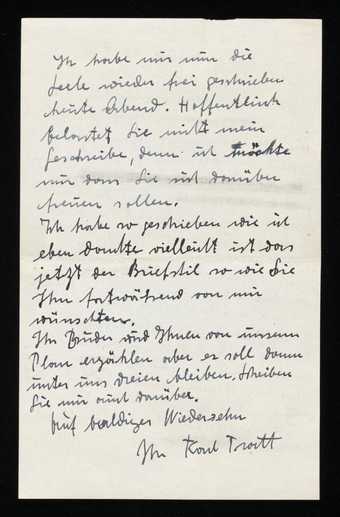 Ich habe mir nun die
Seele wieder frei geschrieben
heute Abend. Hoffentlich
belastet Sie nicht mein
Geschreibe, denn ich möchte
nur dass Sie sich darüber
freuen sollen.
Ich habe so geschrieben wie ich
eben dachte vielleicht ist das
jetzt der Briefstil so wie Sie
Ihn fortwährend von mir
wünschten.
Ihr Bruder wird Ihnen von unserm
Plan erzählen aber es soll dann
unter uns dreien bleiben. Schreiben
Sie mir auch darüber.
Auf baldiges Wiedersehn
Ihr Kurt